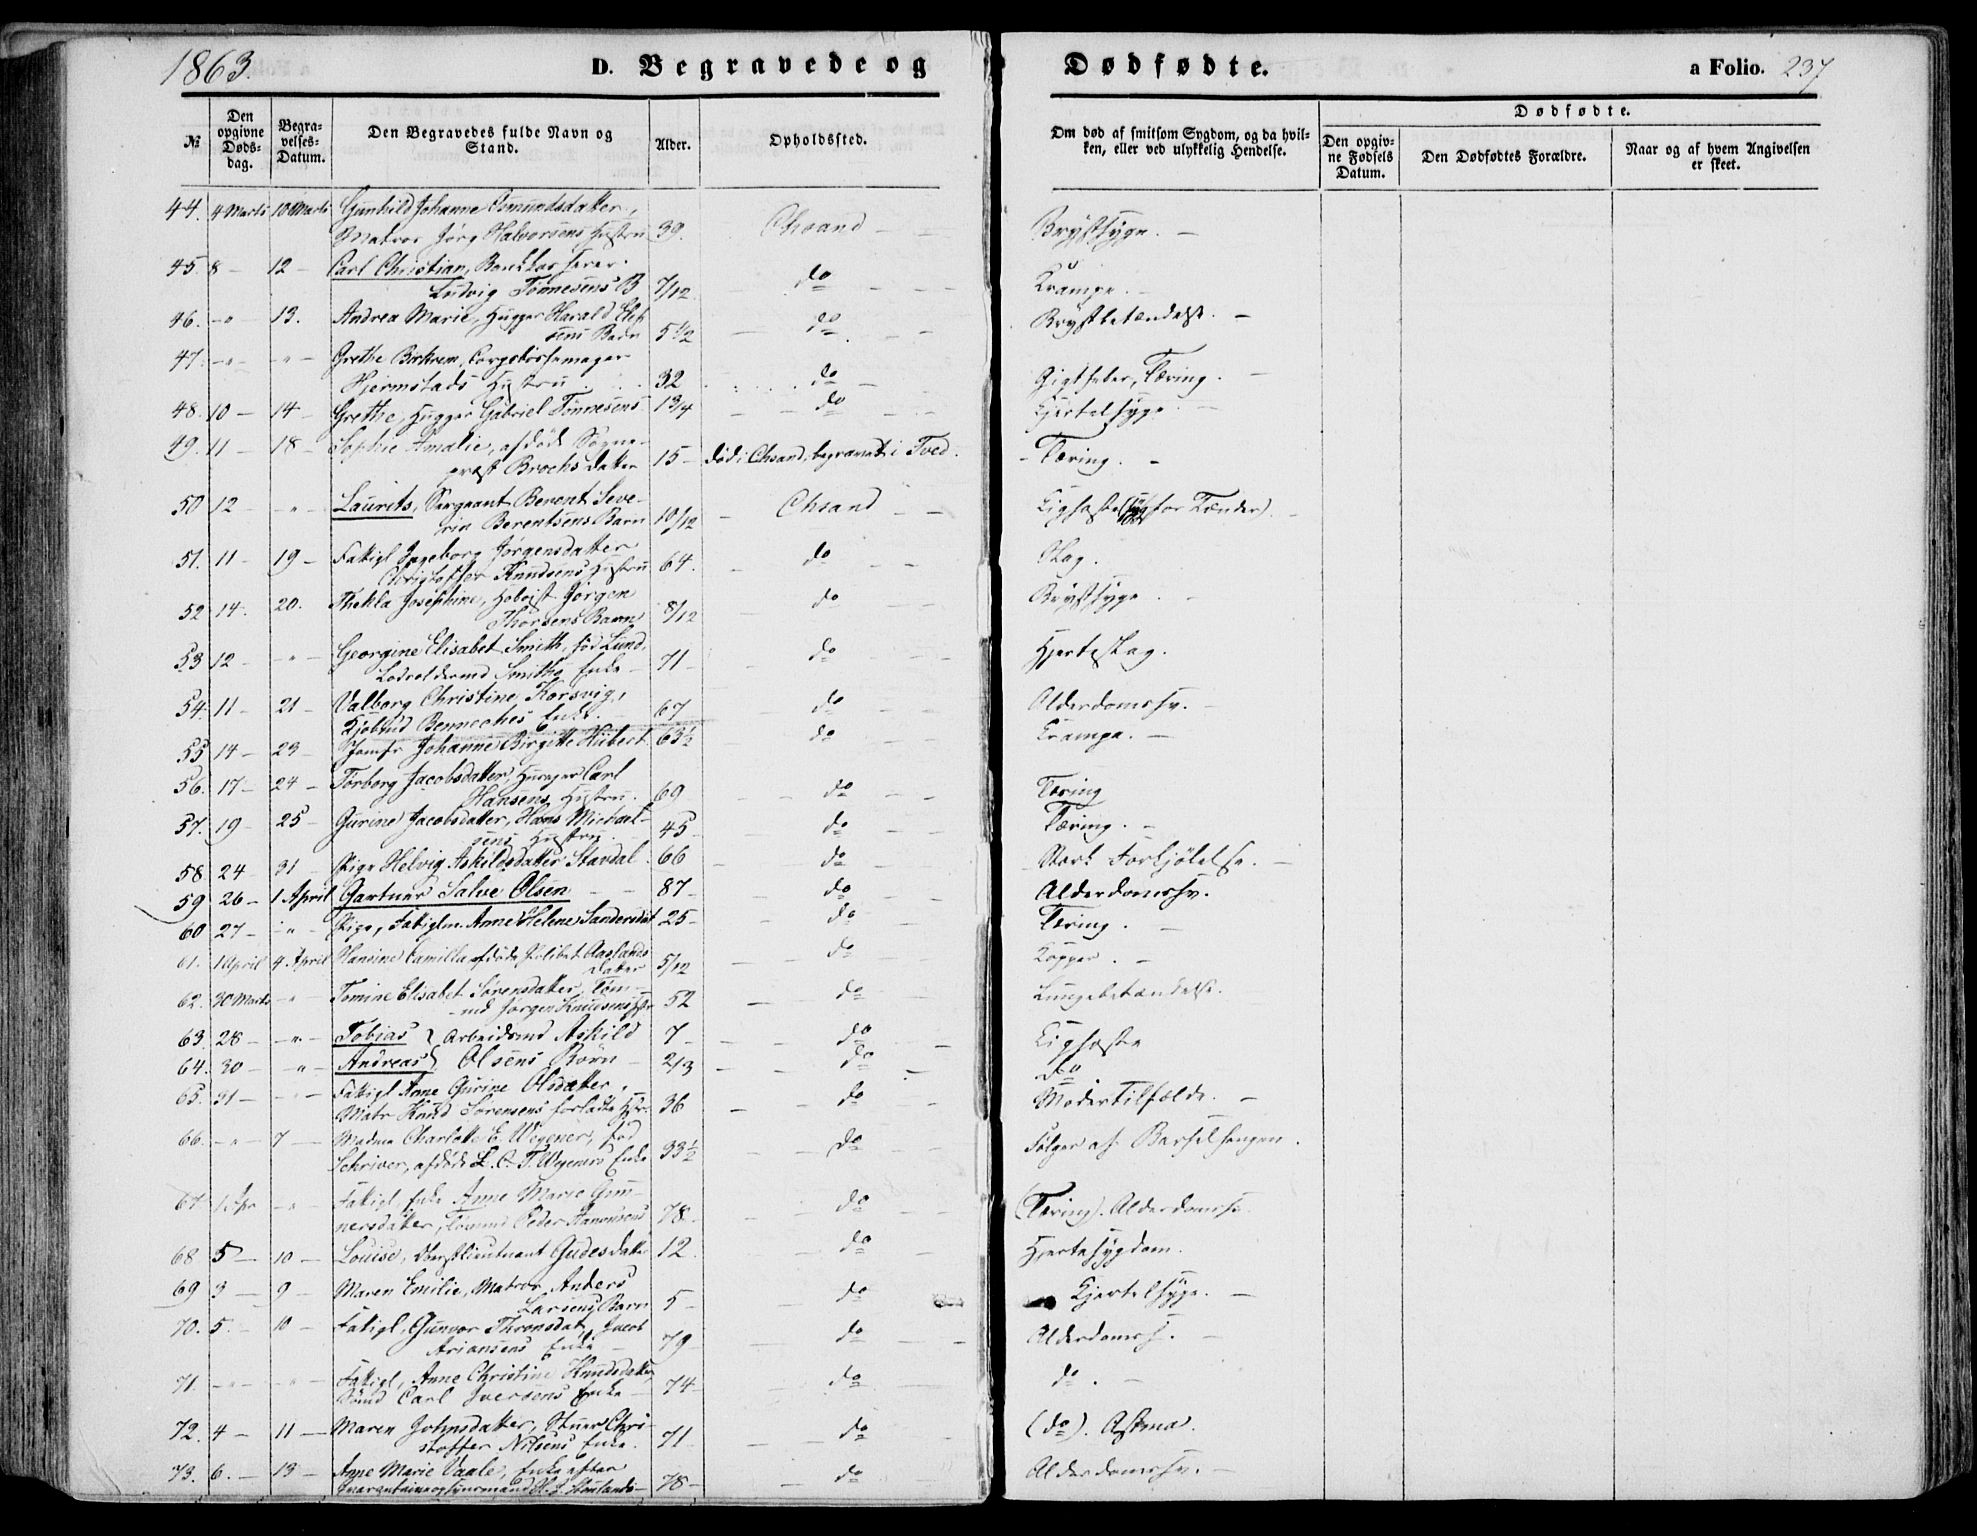 1863.
D. Begravede og Dødfødte.
a Folio. 237
№
Den opgivne Døds-dag.
Begra-velses-Datum.
Den Begravedes fulde Navn og Stand.
Alder.
Opholdssted.
Om død af smitsom Sygdom, og da hvil-ken, eller ved ulykkelig Hendelse.
Dødfødte.
Den opgiv-ne Fødsels Datum.
Den Dødfødtes Forældre.
Naar og af hvem Angivelsen er skeet.
44. 4 Marts 10 Marts Gunhild Johanne Osmundsdatter,
Matros Jørg Halvorsens Hustru 39. Chsand Brystsyge.
45 8 12 Carl Christian, Bankkasserer
Ludvig Tønnesens B 7/12 do Krampe.
46. " 13. Andrea Marie, Hugger Harald
sens Barn 5 1/2 do Brystbetændelse.
47. " " Grethe Birkrem,
Hjermstads Hustru 32 do Gigtfeber, Tæring.
48. 10 14 Grethe, Hugger Gabriel Tønnesens 1 3/4 do Kjertelsyge.
49. 11 18 Sophie Amalie, afdøde Sogne-
præst Brochs datter 15 død i Chsand, begravet i Tved. Tæring.
50 12 " Laurits, Sergeant Berent Seve-
rin Berentsens Barn 10/12 Chsand Kighoste for Tænder).
51. 11 19 Fattigl Ingeborg Jørgensdatter
Christoffer Knudsens Hustru 64. do Slag.
52 14. 20. Thekla Josephine, Hoboist Jørgen
Thorsens Barn 8/12 do Brystsyge
53 12 " Georgine Elisabet Smith, fød Lund,
Lodsoldermd Smiths Enke 71 do Hjerteslag.
54. 11 21 Valborg Christine Korsvig,
Kjøbmd Benneches Enke. 67 do Alderdomssv.
55 14 23 Jomfr Johanne Birgitte Hübert 63½ do Krampe.
56. 17 24 Torborg Jacobsdatter, Carl
Hansens Hustru. 69 do Tæring
57. 19 25 Gurine Jacobsdatter, Hans Michael-
sens Hustru 45 do Tæring.
58 24 31 Pige Helvig Askildsdatter Stavdal 66 do Stærk Forkjølelse.
59 26 1 April Gartner Salve Olsen 87 do Alderdomssv.
60 27 " Pige, Fattiglm. Anne Helene Sandersdat 25 do Tæring.
61. 1 April 4 April Hansine Camilla afdøde Politbet Aaslands
Datter 5/12 do Kopper.
62. 30 Marts " Tomine Elisabet Sørensdatter, Tøm-
md Jørgen Knudsens Hstr 52 do Lungebetændelse.
63 28 " Tobias } Arbeidsmd Askild 7 do Kighoste
64. 30 " Andreas } Olsens Børn 2/3 do do
65. 31 " Fattigl Anne Gurine Olsdatter,
Matr Knud Sørensens forladte Hstr. 36 do Modertilfælde.
66. " 7 Madme Charlotte E. Wegener, fød
Schriver, afdøde L. C. T. Wegeners Enke 33½ do Følger af Barselsengen.
67. 1 Apr " Fattigl, Enke Anne Marie Gun-
nersdatter, Tømmd Peder Aanonsens 78 do (Tæring). Alderdomssv.
68. 5 10 Louise, Oberstlieutnant Gudes datt 12. do Hjertesygdom.
69 3 9 Maren Emilie, Matros Anders
Larsens Barn 5 do Kjertelsyge.
70. 5. 10 Fattigl, Gunvor Thronsdat, Jacob
Ariansens Enke 79 do Alderdomss.
71. " " Fattigl, Anne Christine Knudsdatter
Carl Iversens Enke 74 do do.
72. 4 11 Maren Johnsdatter, Stuer Chri-
stoffer Nilsens Enke. 71 do (do). Astma.
73. 6. 13 Anne Marie Vaale, Enke efter
78 do Alderdomssv.